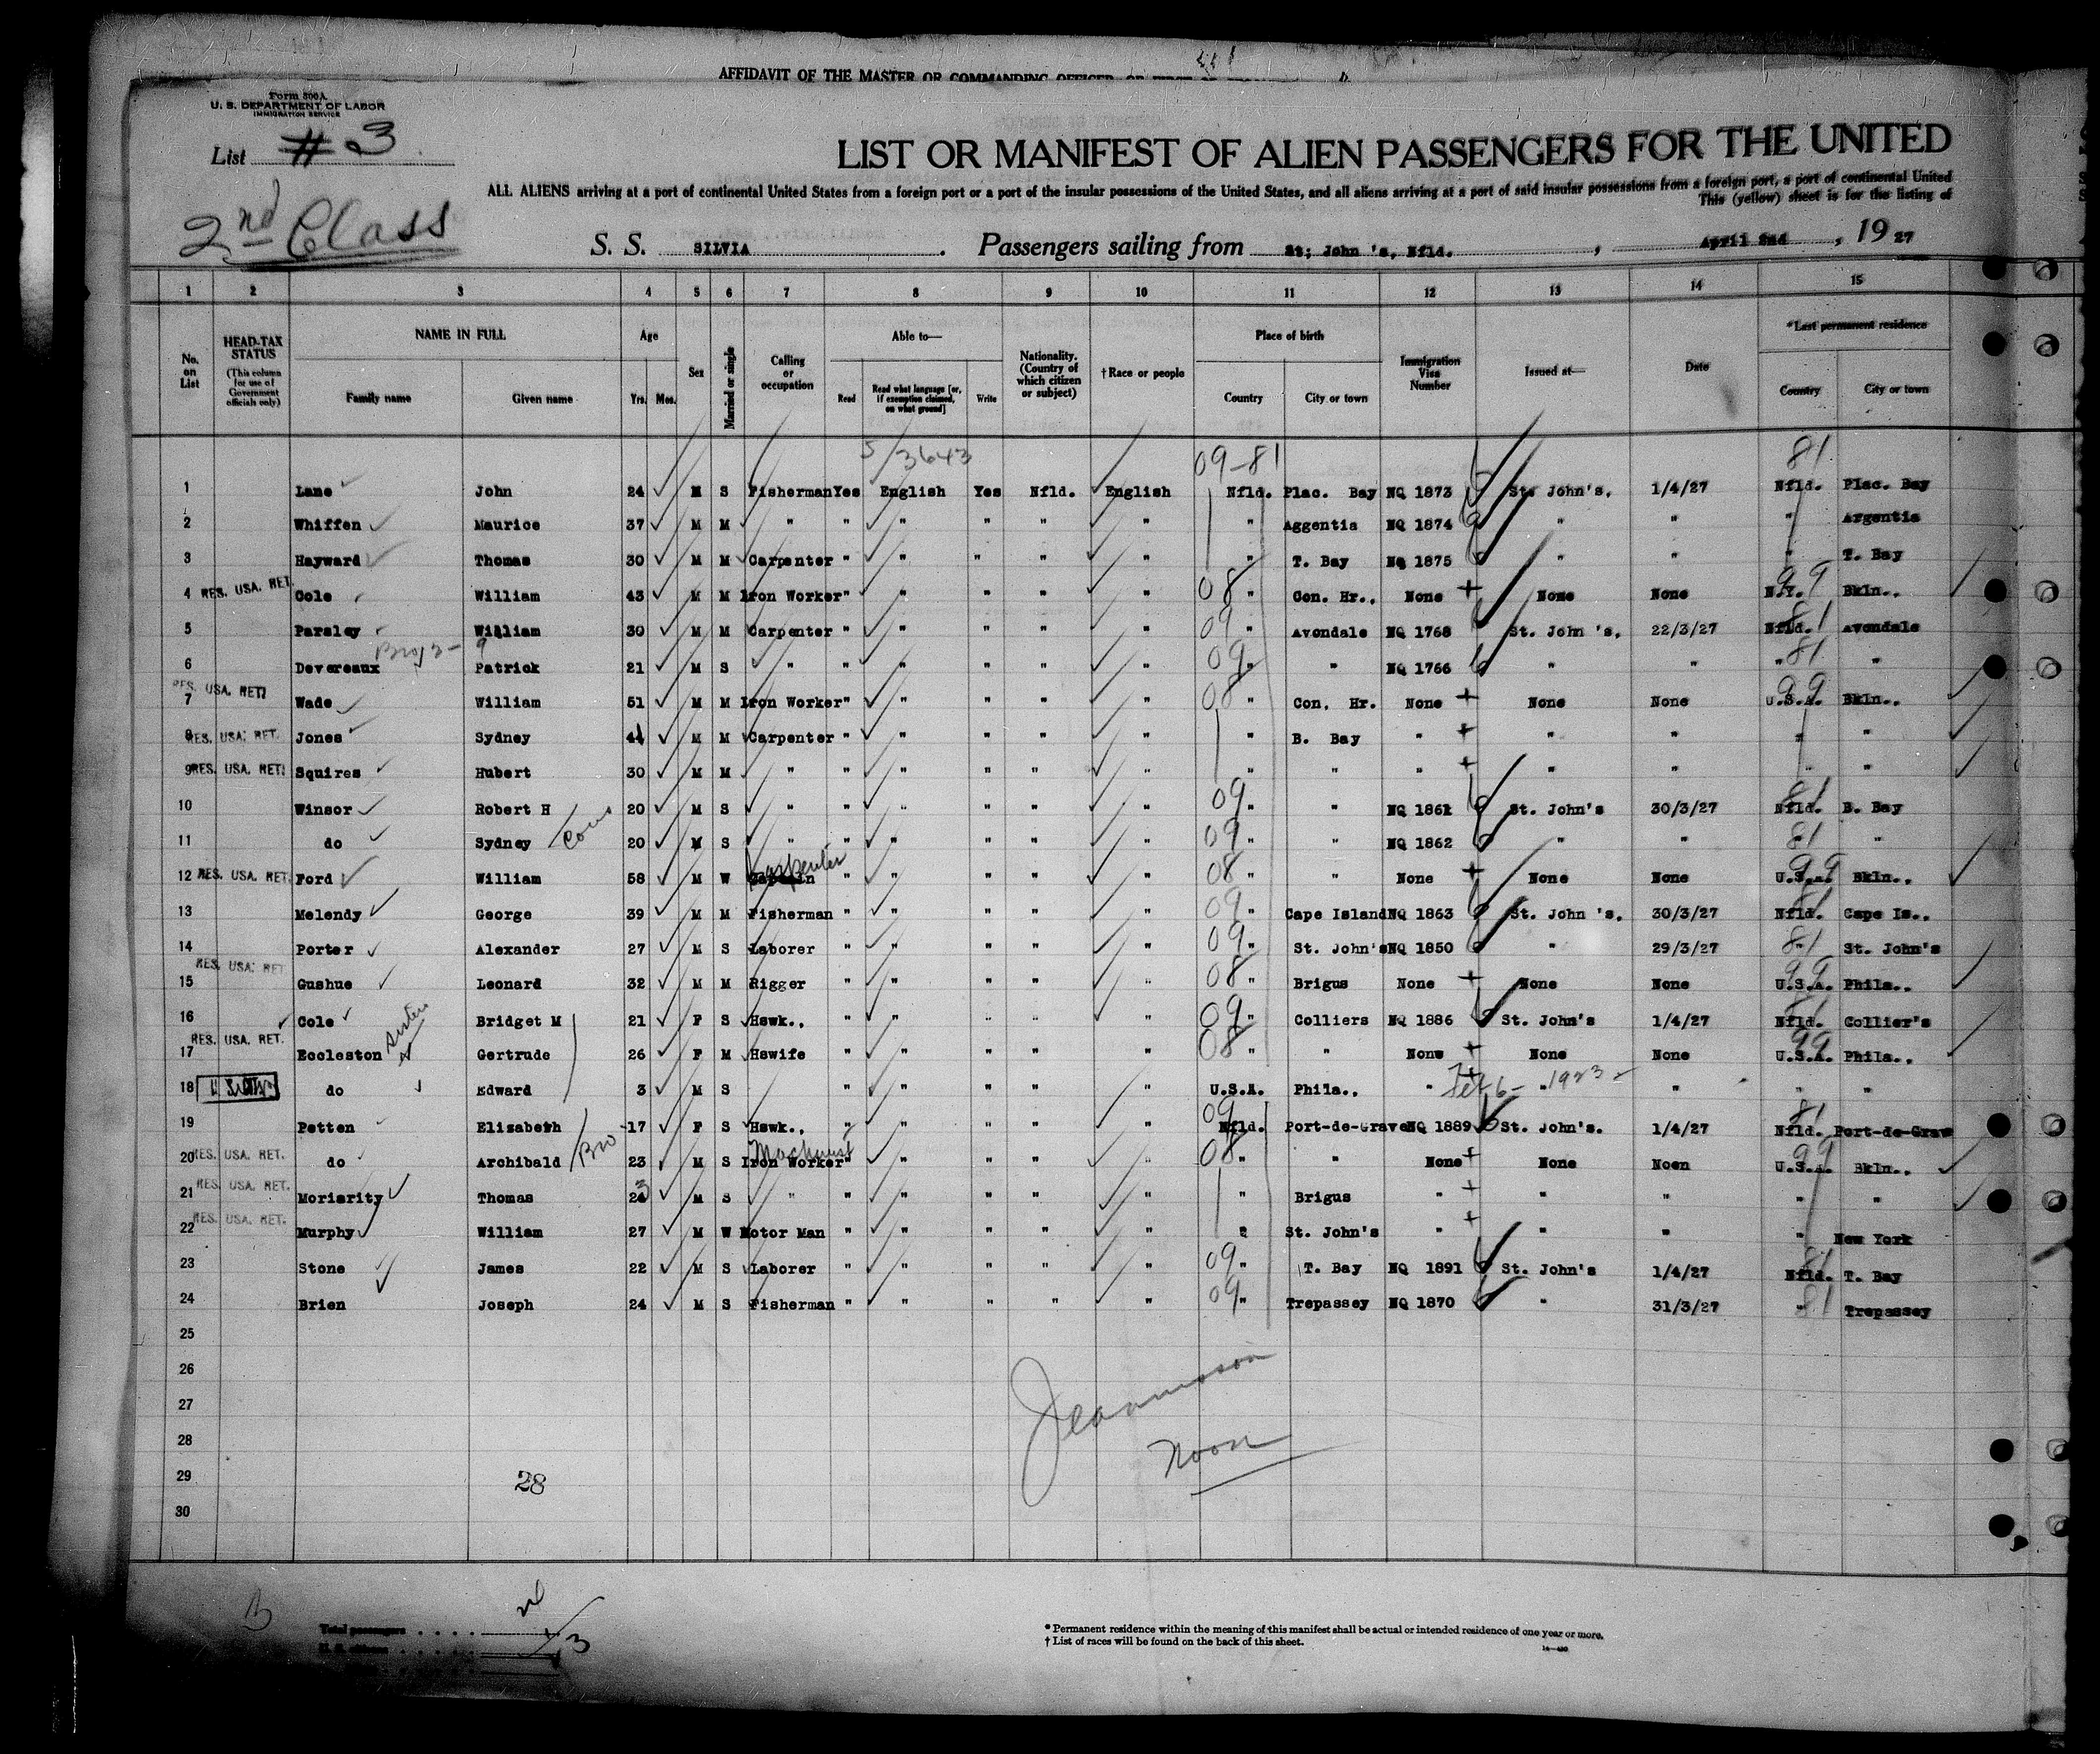 AFFIDAVIT OF THE MASTER OR COMMANDING OFFICER, OR FIRST
Form 500A
U. S. DEPARTMENT OF LABOR
IMMIGRATION SERVICE
List # 3
LIST OR MANIFEST OF ALIEN PASSENGERS FOR THE UNITED
ALL ALIENS arriving at a port of continental United States from a foreign port or a port of the insular possessions of the United States, and all aliens arriving at a port of said insular possessions from a foreign port, a port of continental United
This (yellow) sheet is for the listing of
2nd Class
S. S. SILVIA. Passengers sailing from St; John 's, Nfld. , April 2nd , 19 27
1 2 3 4 5 6 7 8 9 10 11 12 13 14 15
No. on List HEAD-TAX STATUS (This column for use of Government officials only) NAME IN FULL Family name Given name Age Yrs. Mos. Sex Married or single Calling or occupation Able to— Read Read what language [or, if exemption claimed, on what ground] Write Nationality. (Country of which citizen or subject) †Race or people Place of birth Country City or town Immigration Visa Number Issued at— Date *Last permanent residence Country City or town
5/3643 09-81 81
1 Lane John 24 M S Fisherman Yes English Yes Nfld. English Nfld. Plac. Bay NQ 1873 St. John's. 1/4/27 Nfld. Plac. Bay
2 Whiffen Maurice 37 M M " " " " " " " Aggentia NQ 1874 " " " Argentia
3 Hayward Thomas 30 M M Carpenter " " " " " " T. Bay NQ 1875 " " " T. Bay
4 RES. USA. RET. Cole William 43 M M Iron Worker " " " " " 08 " Con. Hr., None + None None N.Y. 99 Bkln.,
5 Parsley William 30 M M Carpenter " " " " " 09 " Avondale NQ 1768 St. John 's. 22/3/27 Nfld. 81 Avondale
6 Devereaux Patrick 21 M S " " " " " " 09 " " NQ 1766 " " " 81 "
7 RES. USA. RET. Wade William 51 M M Iron Worker " " " " " 08 " Con. Hr. None + None None U.S.A. 99 Bkln.,
8 RES. USA. RET. Jones Sydney 41 M M Carpenter " " " " " " B. Bay " + " " " "
9 RES. USA. RET. Squires Hubert 30 M M " " " " " " " " " + " " " "
10 Winsor Robert H 20 M S " " " " " " 09 " " NQ 1861 St. John's 30/3/27 Nfld. 81 B. Bay
11 do Sydney Cous 20 M S " " " " " " 09 " " NQ 1862 " " " 81 "
12 RES. USA. RET. Ford William 58 M W Carpenter " " " " " 08 " " None + None None U.S.A. 99 Bkln.,
13 Melendy George 39 M M Fisherman " " " " " 09 " Cape Island NQ 1863 St. John 's. 30/3/27 Nfld. 81 Cape Is.,
14 Porter Alexander 27 M S Laborer " " " " " 09 " St. John's NQ 1850 " 29/3/27 " 81 St. John's
15 RES. USA. RET Gushue Leonard 32 M M Rigger " " " " " 08 " Brigus None + None None U.S.A. 99 Phila.,
16 Cole Bridget M 21 F S Hswk., " " " " " 09 " Colliers NQ 1886 St. John's 1/4/27 Nfld. 81 Collier's
17 RES. USA. RET. Eccleston Sister Gertrude 26 F M Hswife " " " " " 08 " " None + None None U.S.A. 99 Phila.,
18 do Edward 3 M S " " " " " U.S.A. Phila., " + Feb 6- 1923 " " " "
19 Petten Elizabeth 17 F S Hswk., " " " " " 09 Nfld. Port-de-Grave NQ 1889 St. John's. 1/4/27 Nfld. 81 Port-de-Grav
20 RES. USA. RET. do Archibald Bro 23 M S Iron Worker Machinist " " " " " 08 " " None + None Noen U.S.A. 99 Bkln.,
21 RES. USA. RET. Moriarity Thomas 23 M S " " " " " " " Brigus " + " " " "
22 RES. USA. RET. Murphy William 27 M W Motor Man " " " " " " St. John's " + " " " New York
23 Stone James 22 M S Laborer " " " " " 09 " T. Bay NQ 1891 St. John's 1/4/27 Nfld. 81 T. Bay
24 Brien Joseph 24 M S Fisherman " " " " " 09 " Trepassey NQ 1870 " 31/3/27 " 81 Trepassey
25
26
27
28
29 28
30
Noon
Total passengers
U. S. citizens
3
* Permanent residence within the meaning of this manifest shall be actual or intended residence of one year or more.
† List of races will be found on the back of this sheet.